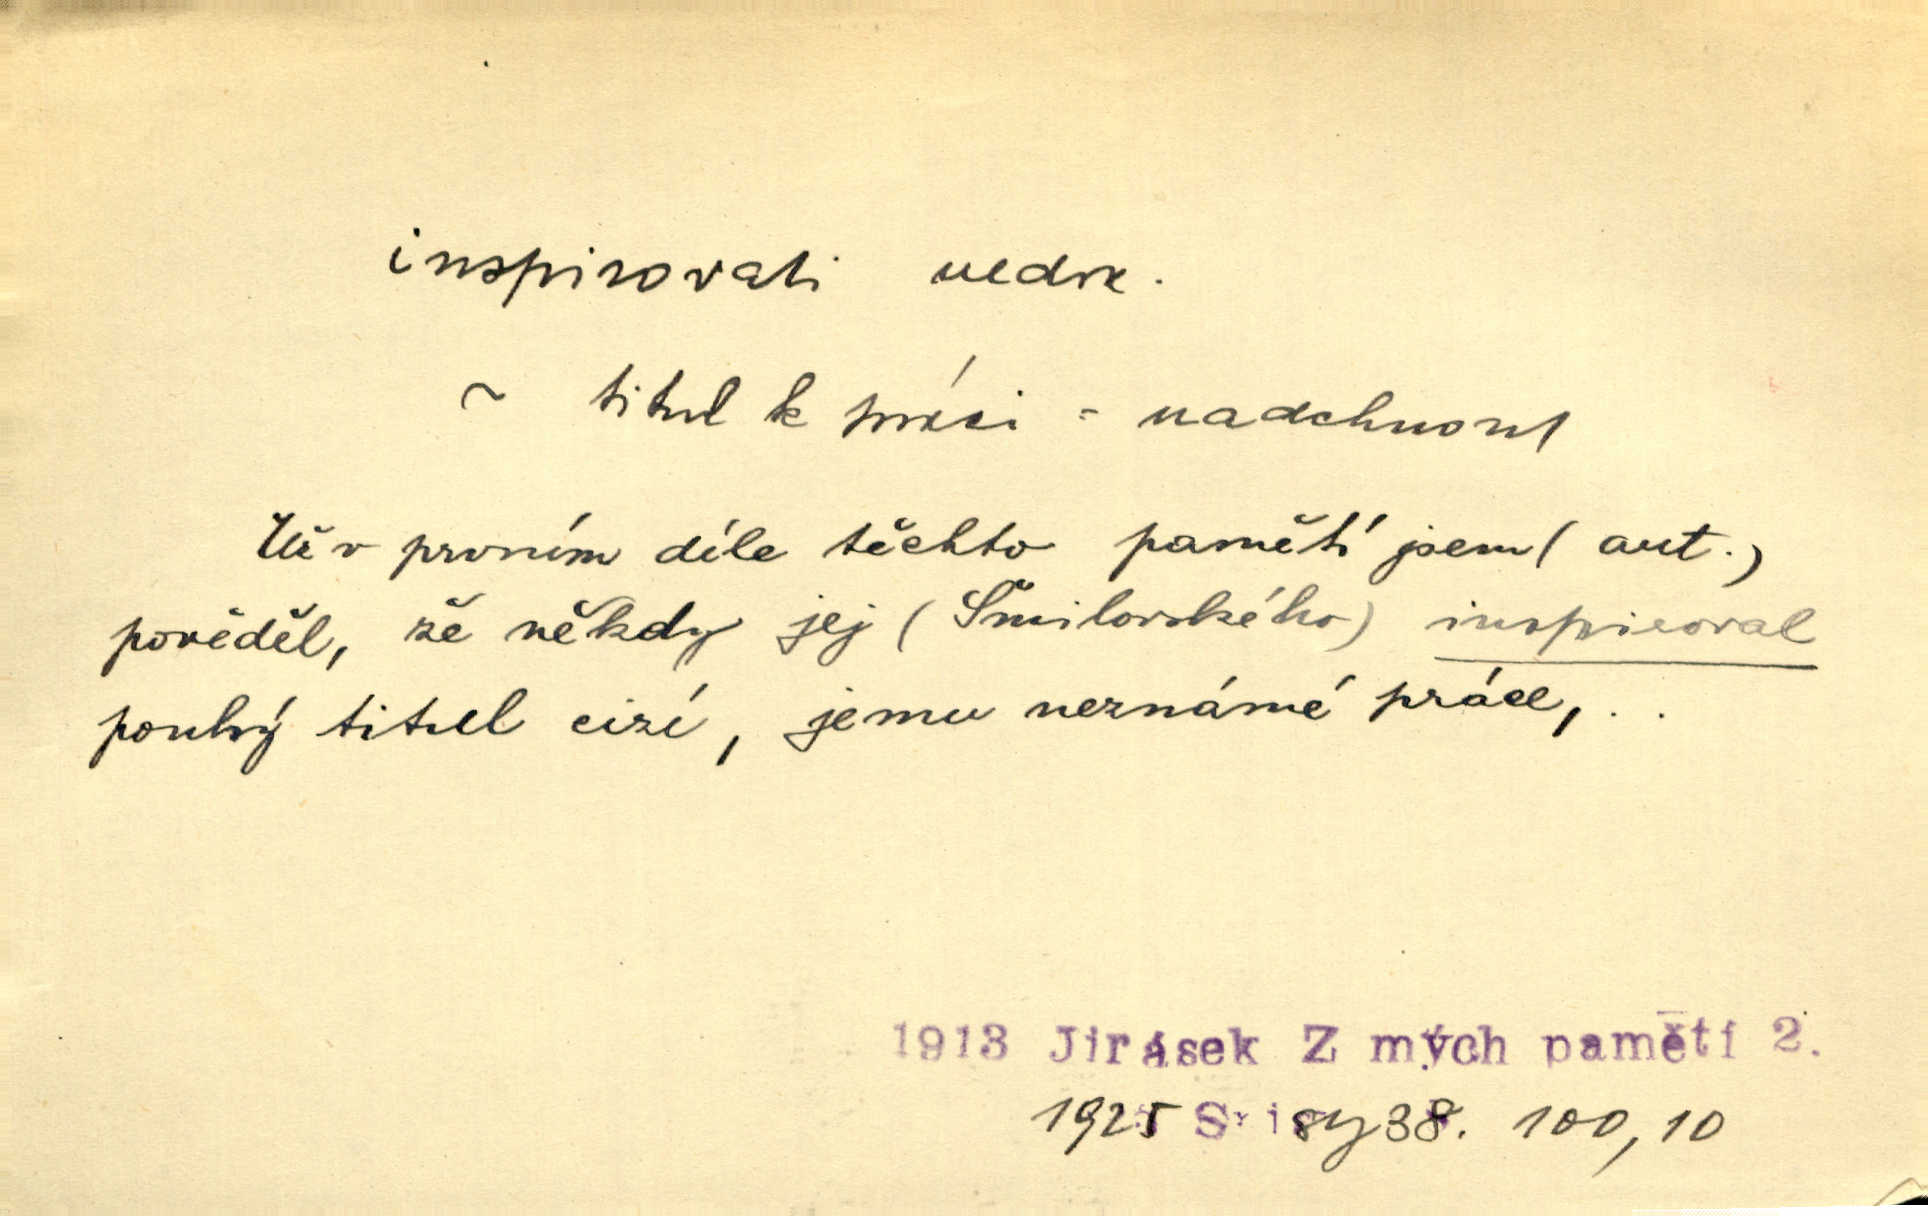 inspirovati nedok.
~ titul k práci = nadchnout
Už v prvním díle těchto pamětí jsem (aut.)
pověděl, že někdy jej (Šmilovského) inspiroval
pouhý titul cizí, jemu neznámé práce, . .
1913 Jirásek Z mých pamětí 2.
1925 38. 100, 10